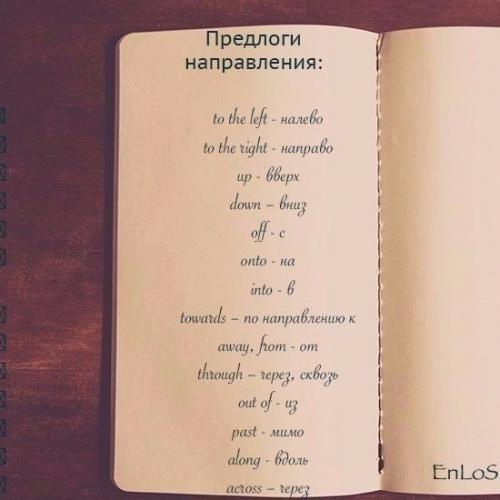 Предлоги
направления:
to the left - налево
to the right - направо
up - вверх
down – вниз
off - с
onto - на
into - в
towards – по направлению к
away, from - от
through – через, сквозь
out of - из
past - мимо
along - вдоль
across – через
EnLoS